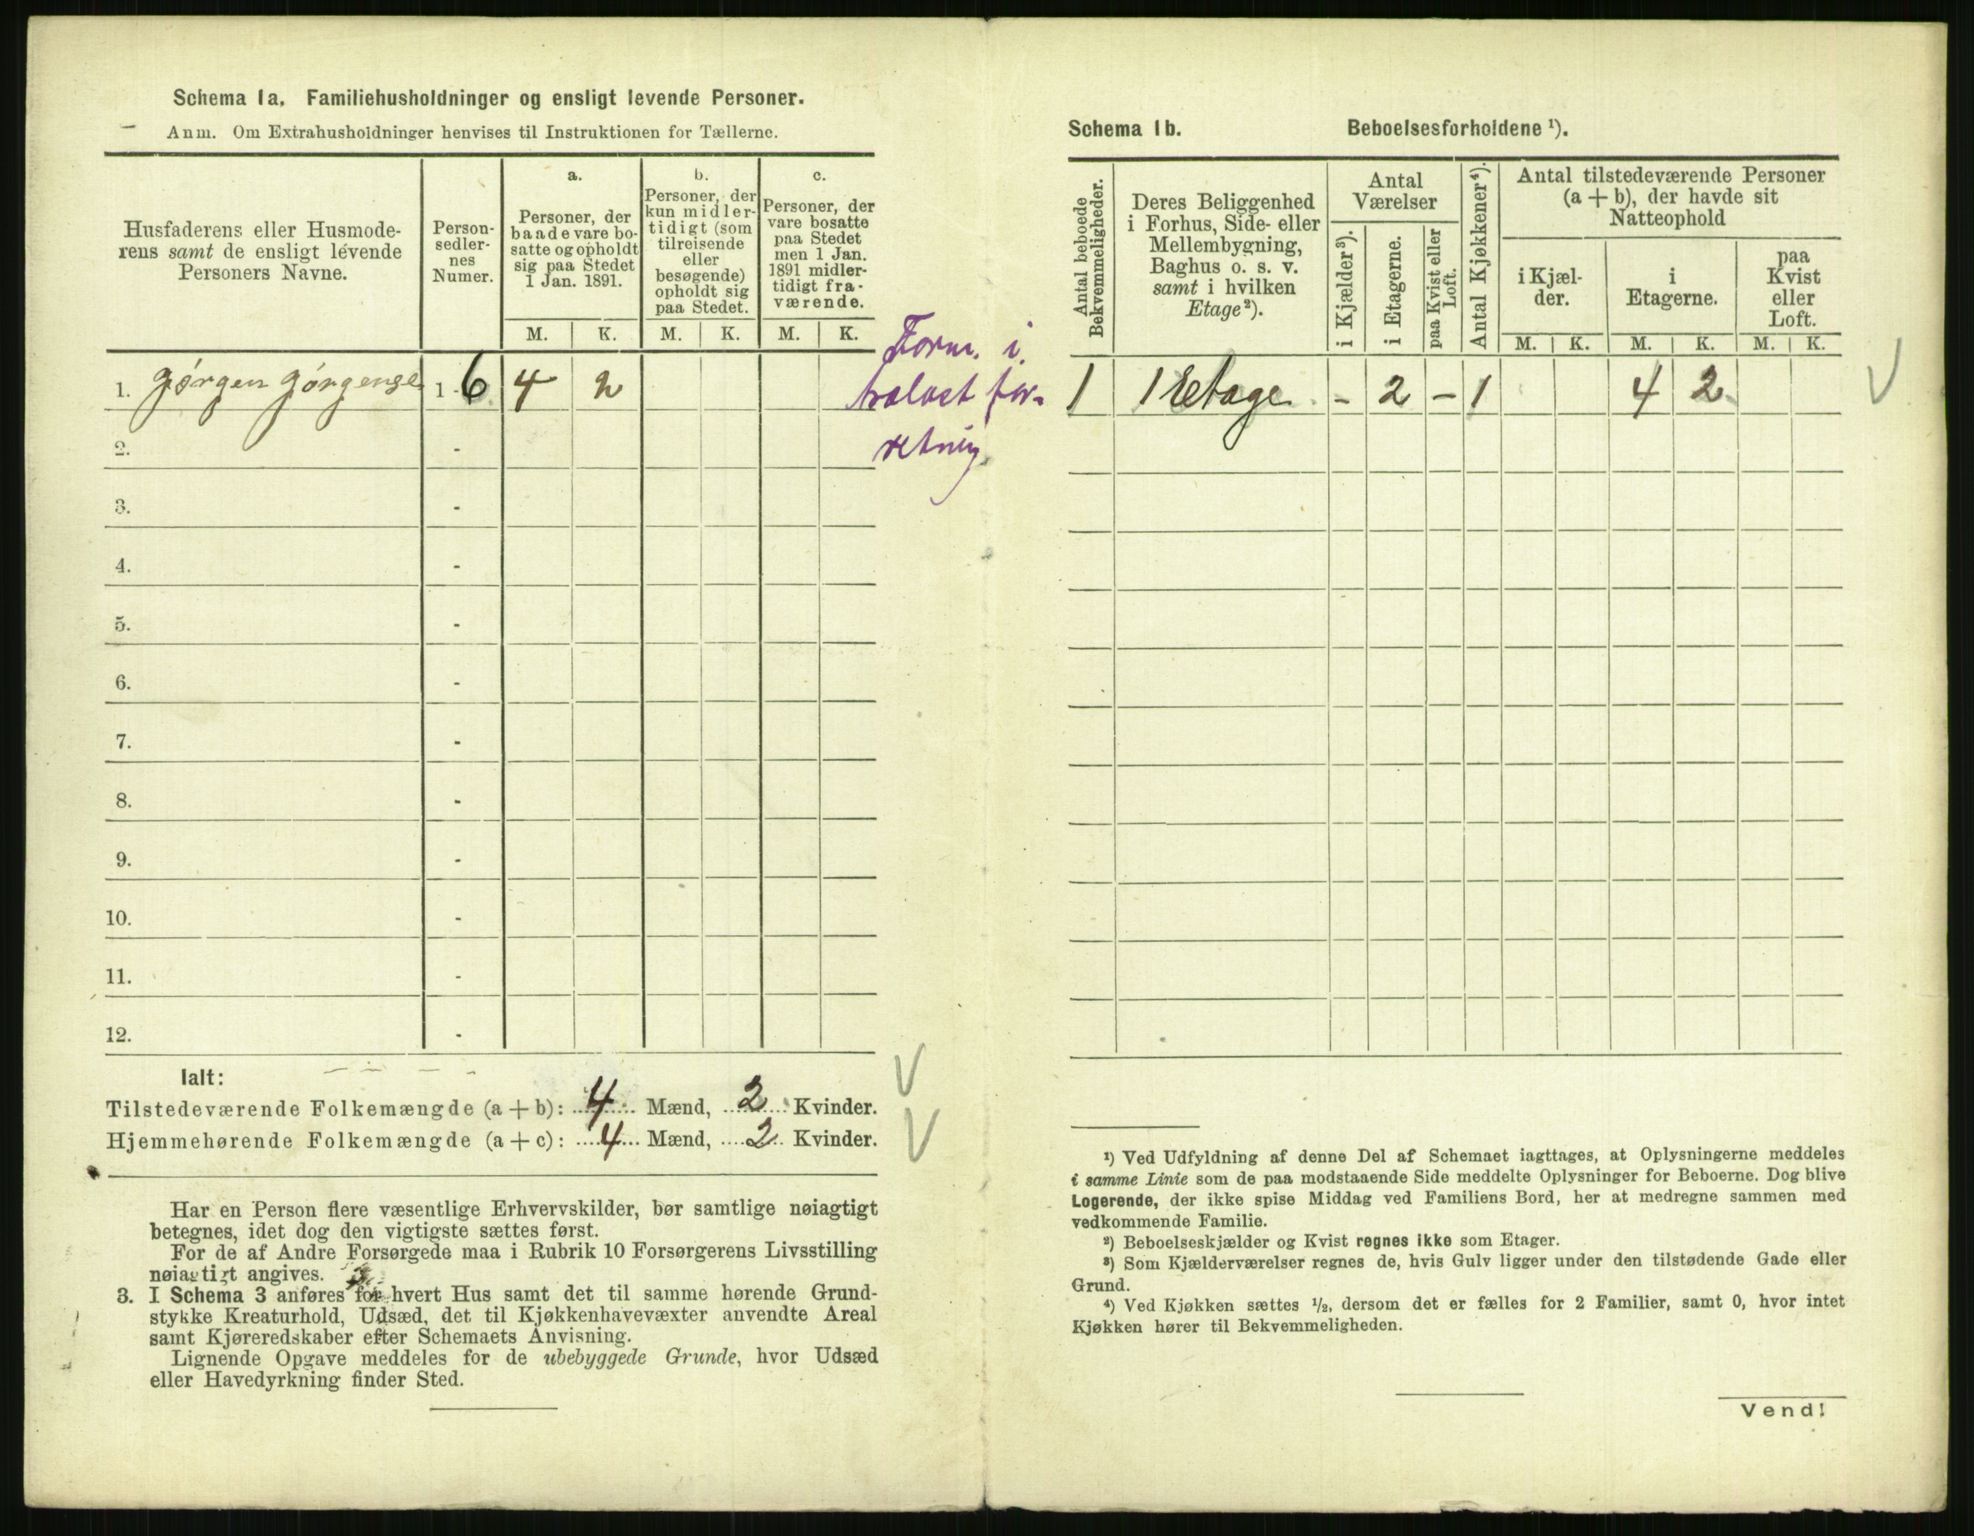 Schema 1a. Familiehusholdninger og ensligt levende Personer.
Anm. Om Extrahusholdninger henvises til Instruktionen for Tællerne.
Husfaderens eller Husmode-
rens samt de ensligt levende
Personers Navne.
Person-
sedler-
nes
Numer.
a.
Personer, der
baade vare bo-
satte og opholdt
sig paa Stedet
1 Jan. 1891.
b.
Personer, der
kun midler-
tidigt (som
tilreisende
eller
besøgende)
opholdt sig
paa Stedet.
c.
Personer, der
vare bosatte
paa Stedet
men 1 Jan.
1891 midler-
tidigt fra-
værende.
M. K. M. K. M. K.
1. Gørgen Gørgensen 1-6 4 2
Form. i.
trælast for-
retning
2. -
3. -
4. -
5. -
6. -
7. -
8. -
9. -
10. -
11. -
12. -
Ialt:
Tilstedeværende Folkemængde (a + b): 4 Mænd, 2 Kvinder.
Hjemmehørende Folkemængde (a + c): 4 Mænd, 2 Kvinder.
Har en Person flere væsentlige Erhvervskilder, bør samtlige nøiagtigt
betegnes, idet dog den vigtigste sættes først.
For de af Andre Forsørgede maa i Rubrik 10 Forsørgerens Livsstilling
nøiagtigt angives.
3. I Schema 3 anføres for hvert Hus samt det til samme hørende Grund-
stykke Kreaturhold, Udsæd, det til Kjøkkenhavevæxter anvendte Areal
samt Kjøreredskaber efter Schemaets Anvisning.
Lignende Opgave meddeles for de ubebyggede Grunde, hvor Udsæd
eller Havedyrkning finder Sted.
Schema 1b. Beboelsesforholdene ¹).
Antal beboede
Bekvemmeligheder.
Deres Beliggenhed
i Forhus, Side- eller
Mellembygning,
Baghus o. s. v.
samt i hvilken
Etage²).
Antal
Værelser
i Kjælder³).
i Etagerne.
paa Kvist eller
Loft.
Antal Kjøkkener⁴).
Antal tilstedeværende Personer
(a + b), der havde sit
Natteophold
i Kjæl-
der.
i
Etagerne.
paa
Kvist
eller
Loft.
M. K. M. K. M. K.
1 1 Etage - 2 - 1 4 2
¹) Ved Udfyldning af denne Del af Schemaet iagttages, at Oplysningerne meddeles
i samme Linie som de paa modstaaende Side meddelte Oplysninger for Beboerne. Dog blive
Logerende, der ikke spise Middag ved Familiens Bord, her at medregne sammen med
vedkommende Familie.
²) Beboelseskjælder og Kvist regnes ikke som Etager.
³) Som Kjælderværelser regnes de, hvis Gulv ligger under den tilstødende Gade eller
Grund.
⁴) Ved Kjøkken sættes ½, dersom det er fælles for 2 Familier, samt 0, hvor intet
Kjøkken hører til Bekvemmeligheden.
Vend!